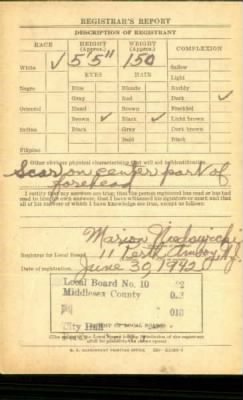 REGISTRAR'S REPORT
DESCRIPTION OF REGISTRANT
RACE HEIGHT (Approx.) WEIGHT (Approx.) COMPLEXION
White ✓ 5'5" 150 Sallow
EYES HAIR Light
Negro Blue Blonde Ruddy
Gray Red Dark ✓
Oriental Hazel Brown Freckled
Brown ✓ Black ✓ Light brown
Indian Black Gray Dark brown
Filipino Bald Black
Other obvious physical characteristics that will aid in identification
Scar on center part of
forehead
I certify that my answers are true; that the person registered has read or has had
read to him his own answers; that I have witnessed his signature or mark and that
all of his answers of which I have knowledge are true, except as follows:
Marion
Registrar for Local Board 11 Perth Amboy N.J.
Date of registration June 30, 1942
Local Board No. 10
Middlesex County
City Hall
(STAMP OF LOCAL BOARD)
(The stamp of the Local Board having jurisdiction of the registrant
shall be placed in the above space)
U. S. GOVERNMENT PRINTING OFFICE